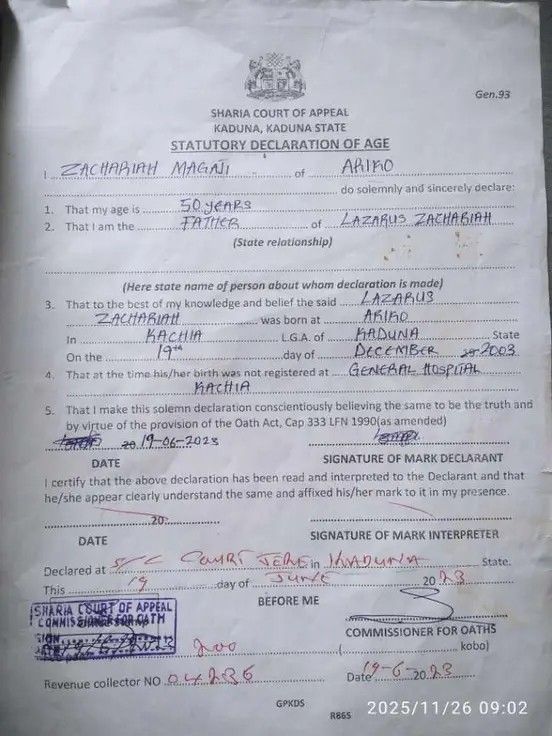 Gen.93
SHARIA COURT OF APPEAL
KADUNA, KADUNA STATE
STATUTORY DECLARATION OF AGE
I ZACHARIAH MAGAJI of ARIKO
do solemnly and sincerely declare:
1. That my age is 50 YEARS
2. That I am the FATHER of LAZARUS ZACHARIAH
(State relationship)
(Here state name of person about whom declaration is made)
3. That to the best of my knowledge and belief the said LAZARUS
ZACHARIAH was born at ARIKO
In KACHIA L.G.A. of KADUNA State
On the 19th day of DECEMBER 20 2003
4. That at the time his/her birth was not registered at GENERAL HOSPITAL
KACHIA
5. That I make this solemn declaration conscientiously believing the same to be the truth and
by virtue of the provision of the Oath Act, Cap 333 LFN 1990(as amended)
20 19-06-2023
DATE SIGNATURE OF MARK DECLARANT
I certify that the above declaration has been read and interpreted to the Declarant and that
he/she appear clearly understand the same and affixed his/her mark to it in my presence.
20
DATE SIGNATURE OF MARK INTERPRETER
Declared at S/C COURT JERE in KADUNA State.
This 19 day of JUNE 2023
BEFORE ME
SHARIA COURT OF APPEAL
COMMISSIONER FOR OATH
SIGN
DATE
COMMISSIONER FOR OATHS
200 ( kobo)
Revenue collector NO 04236 Date 19-6-2023
GPKDS
R865
2025/11/26 09:02